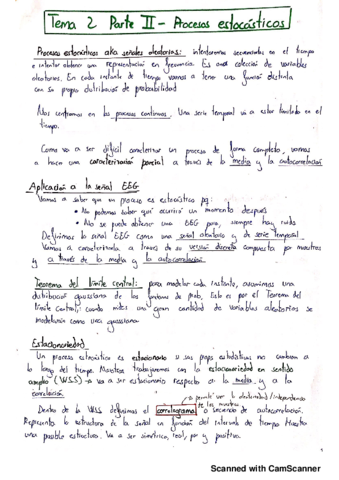 Tema 2 Parte II - Procesos estocásticos
Procesos estocásticos aka señales aleatorias: intentaremos secuenciarlos en el tiempo
e intentar obtener una representación en frecuencia. Es una colección de variables
aleatorias. En cada instante de tiempo vamos a tener una función distinta
con su propia distribución de probabilidad
Nos centramos en los procesos continuos. Una serie temporal va a estar limitada en el
tiempo.
Como va a ser difícil caracterizar un proceso de forma completa, vamos
a hacer una caracterización parcial a través de la media y la autocorrelación
Aplicación a la señal EEG
Vamos a saber que un proceso es estocástico pq:
• No podemos saber qué ocurrirá un momento después
• No se puede obtener una EEG pura, siempre hay ruido
Definimos la señal EEG como una señal aleatoria y de serie temporal
Vamos a caracterizarla a través de su versión discreta compuesta por muestras
y a través de la media y la autocorrelación.
Teorema del límite central: para modelar cada instante, asumimos una
distribución gaussiana de las funciones de prob. Esto es por el Teorema del
límite Central: cuando existe una gran cantidad de variables aleatorias se
modelarán como una gaussiana
Estacionariedad
Un proceso estocástico es estacionario si sus props estadísticas no cambian a
lo largo del tiempo. Nosotros trabajaremos con la estacionariedad en sentido
amplio (W.S.S) → va a ser estacionario respecto a la media y a la
correlación
→ permite ver la aleatoriedad/independencia
de las muestras
Dentro de la WSS definimos el correlograma o secuencia de autocorrelación.
Representa la estructura de la señal en función del intervalo de tiempo. Muestra
una posible estructura. Va a ser simétrica, real, par y positiva.
Scanned with CamScanner